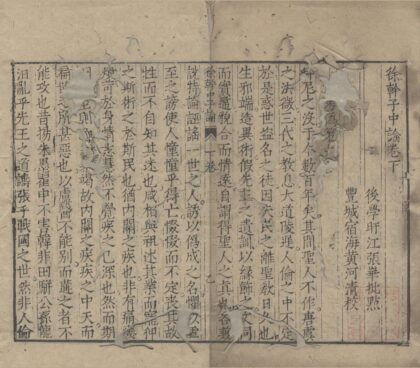 徐幹子中論卷下
後學旴江張華批點
豐城宿海黃河清校
仲尼之没于今數百年矣其間聖人不作唐虞
之法微三代之教息大道陵遲人倫之中不定
於是惑世盜名之徒因夫民之離聖教日久也
生邪端造異術假先王之遺訓以緣飾之文同
而實違貌合而情遠自謂得聖人之真也各兼
徐幹中論 下卷
說特論誣謡一世之人誘以偽成之名懼以虛
至之謗使人憧憧乎得亡惙惙而不定喪其故
性而不自知其迷也咸相與祖述其業而寵狎
之斯術之於斯民也猶内關之疾也非有痛癢
煩苛於身情志慧然不覺疾之已深也然而期
日既至則血氣暴竭故内關之疾疾之中夭而
扁鵲之所甚惡也以盧醫不能别而遘之者不
能攻也昔楊朱墨翟申不害韓非田駢公孫龍
汩亂乎先王之道譸張乎戰國之世然非人倫